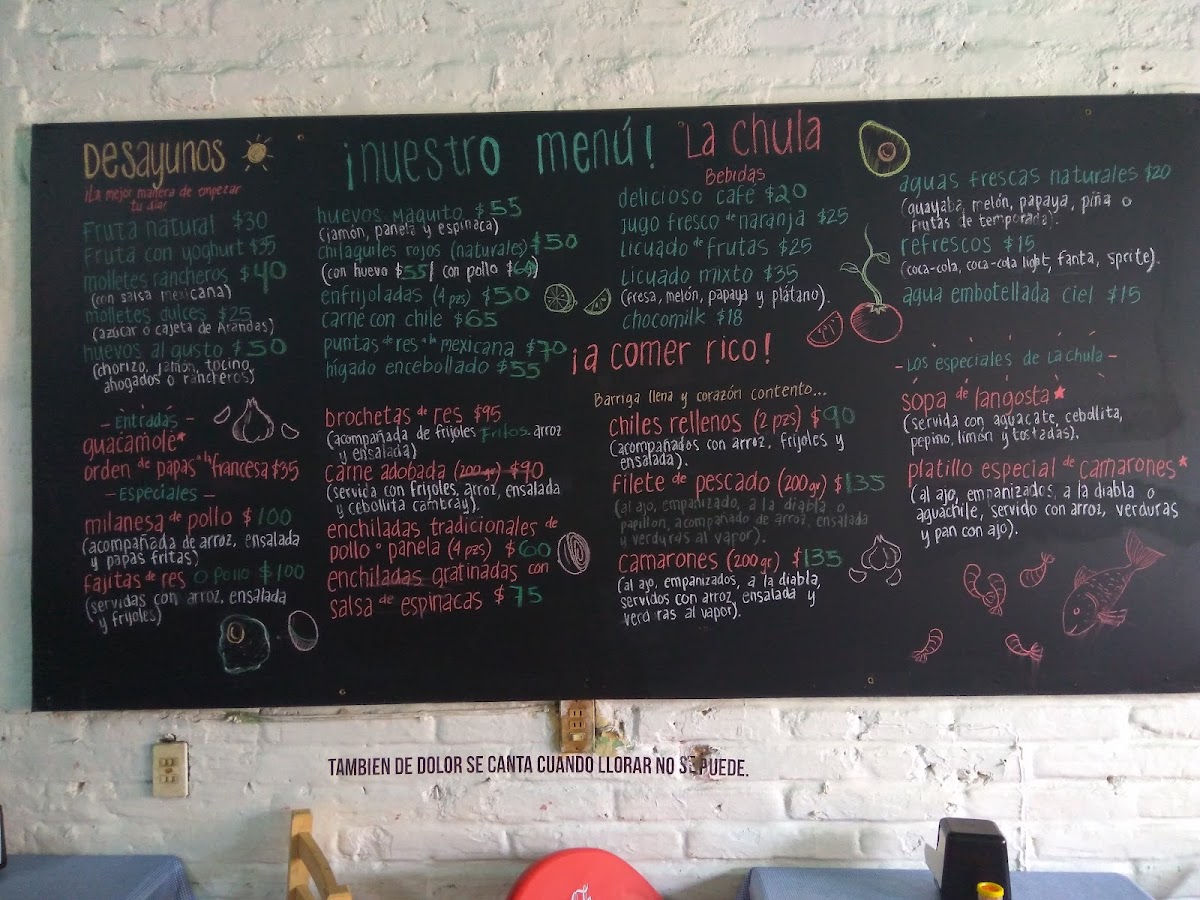 Desayunos
¡La mejor manera de empezar
tu día!
Fruta natural $30
Fruta con yoghurt $35
molletes rancheros $40
(con salsa mexicana)
molletes dulces $25
(azúcar o cajeta de Arandas)
huevos al gusto $50
(chorizo, jamón, tocino,
ahogados o rancheros)
- Entradas -
guacamole*
orden de papas a la francesa $35
- Especiales -
milanesa de pollo $100
(acompañada de arroz, ensalada
y papas fritas)
fajitas de res o Pollo $100
(servidas con arroz, ensalada
y frijoles)
¡nuestro menú!
huevos Maquito $55
(jamón, panela y espinaca)
chilaquiles rojos (naturales) $50
(con huevo $55 / con pollo $60)
enfrijoladas (4 pzs) $50
carne con chile $65
puntas de res a la mexicana $70
hígado encebollado $55
brochetas de res $95
(acompañada de frijoles Fritos, arroz
y ensalada)
carne adobada (200 gr) $90
(servida con frijoles, arroz, ensalada
y cebollita cambray).
enchiladas tradicionales de
pollo o panela (4 pzs) $60
enchiladas gratinadas con
salsa de espinacas $75
La chula
Bebidas
delicioso café $20
jugo fresco de naranja $25
licuado de frutas $25
licuado mixto $35
(fresa, melón, papaya y plátano).
chocomilk $18
¡a comer rico!
Barriga llena y corazón contento...
chiles rellenos (2 pzs) $90
(acompañados con arroz, frijoles y
ensalada).
filete de pescado (200 gr) $135
(al ajo, empanizado, a la diabla o
papillon, acompañado de arroz, ensalada
y verduras al vapor).
camarones (200 gr) $135
(al ajo, empanizados, a la diabla,
servidos con arroz, ensalada y
verduras al vapor).
aguas frescas naturales $20
(guayaba, melón, papaya, piña o
frutas de temporada).
refrescos $15
(coca-cola, coca-cola light, fanta, sprite).
agua embotellada ciel $15
- Los especiales de La chula -
sopa de langosta*
(servida con aguacate, cebollita,
pepino, limón y tostadas).
platillo especial de camarones*
(al ajo, empanizados, a la diabla o
aguachile, servido con arroz, verduras
y pan con ajo).
TAMBIEN DE DOLOR SE CANTA CUANDO LLORAR NO SE PUEDE.